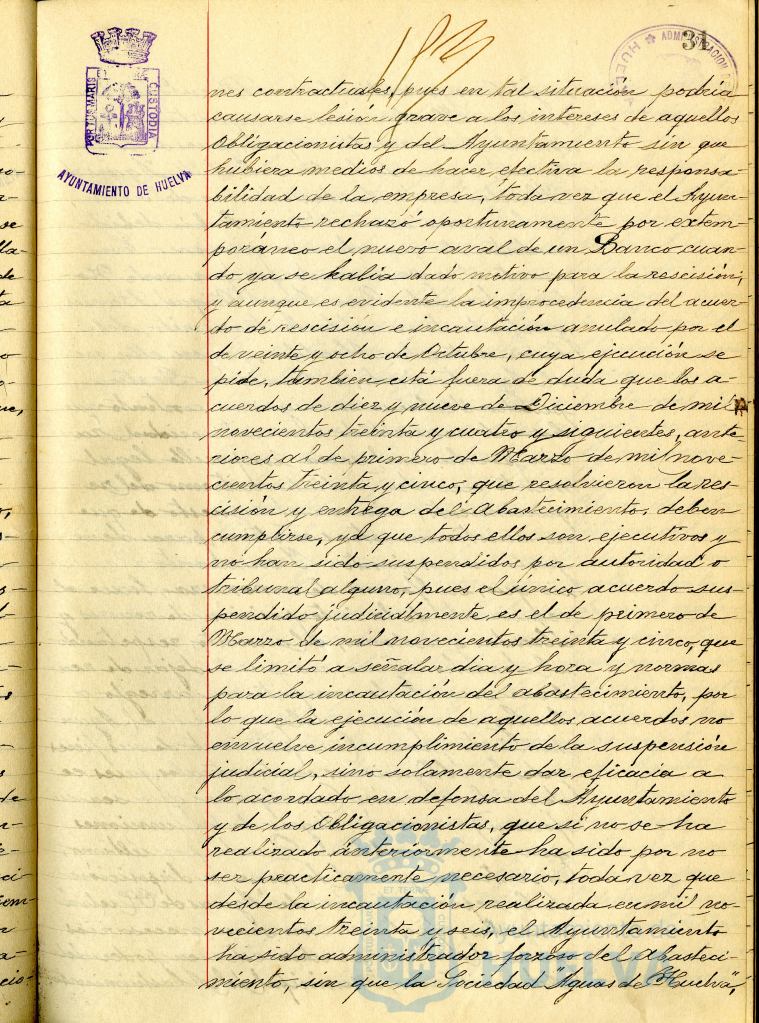 153
34
ADMINISTRACION
HUELVA
PORTUS MARIS
CUSTODIA
AYUNTAMIENTO DE HUELVA
nes contractuales, pues en tal situacion podria
causarse lesión grave a los intereses de aquellos
Obligacionistas y del Ayuntamiento sin que
hubiera medios de hacer efectiva la responsa-
bilidad de la empresa, toda vez que el Ayun-
tamiento rechazó oportunamente por extem-
poráneo el nuevo aval de un Banco cuan-
do ya se habia dado motivo para la rescisión;
y aunque es evidente la improcedencia del acuer-
do de rescisión e incautación anulado por el
de veinte y ocho de Octubre, cuya ejecución se
pide, tambien está fuera de duda que los a-
cuerdos de diez y nueve de Diciembre de mil
novecientos treinta y cuatro y siguientes, ante-
riores al de primero de Marzo de mil nove-
cientos treinta y cinco, que resolvieron la res-
cisión y entrega del Abastecimiento, deben
cumplirse, ya que todos ellos son ejecutivos y
no han sido suspendidos por autoridad o
tribunal alguno, pues el único acuerdo sus-
pendido judicialmente es el de primero de
Marzo de mil novecientos treinta y cinco, que
se limitó a señalar dia y hora y normas
para la incautación del abastecimiento, por
lo que la ejecución de aquellos acuerdos no
envuelve incumplimiento de la suspensión
judicial, sino solamente dar eficacia a
lo acordado en defensa del Ayuntamiento
y de los Obligacionistas, que si no se ha
realizado anteriormente ha sido por no
ser practicamente necesario, toda vez que
desde la incautación realizada en mil no-
vecientos treinta y seis, el Ayuntamiento
ha sido administrador forzoso del Abasteci-
miento, sin que la Sociedad Aguas de Huelva",